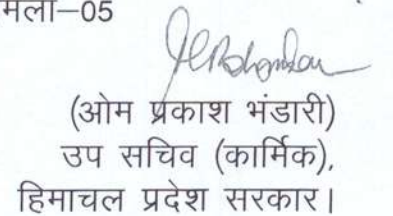 मला–05
(ओम प्रकाश भंडारी)
उप सचिव (कार्मिक),
हिमाचल प्रदेश सरकार।